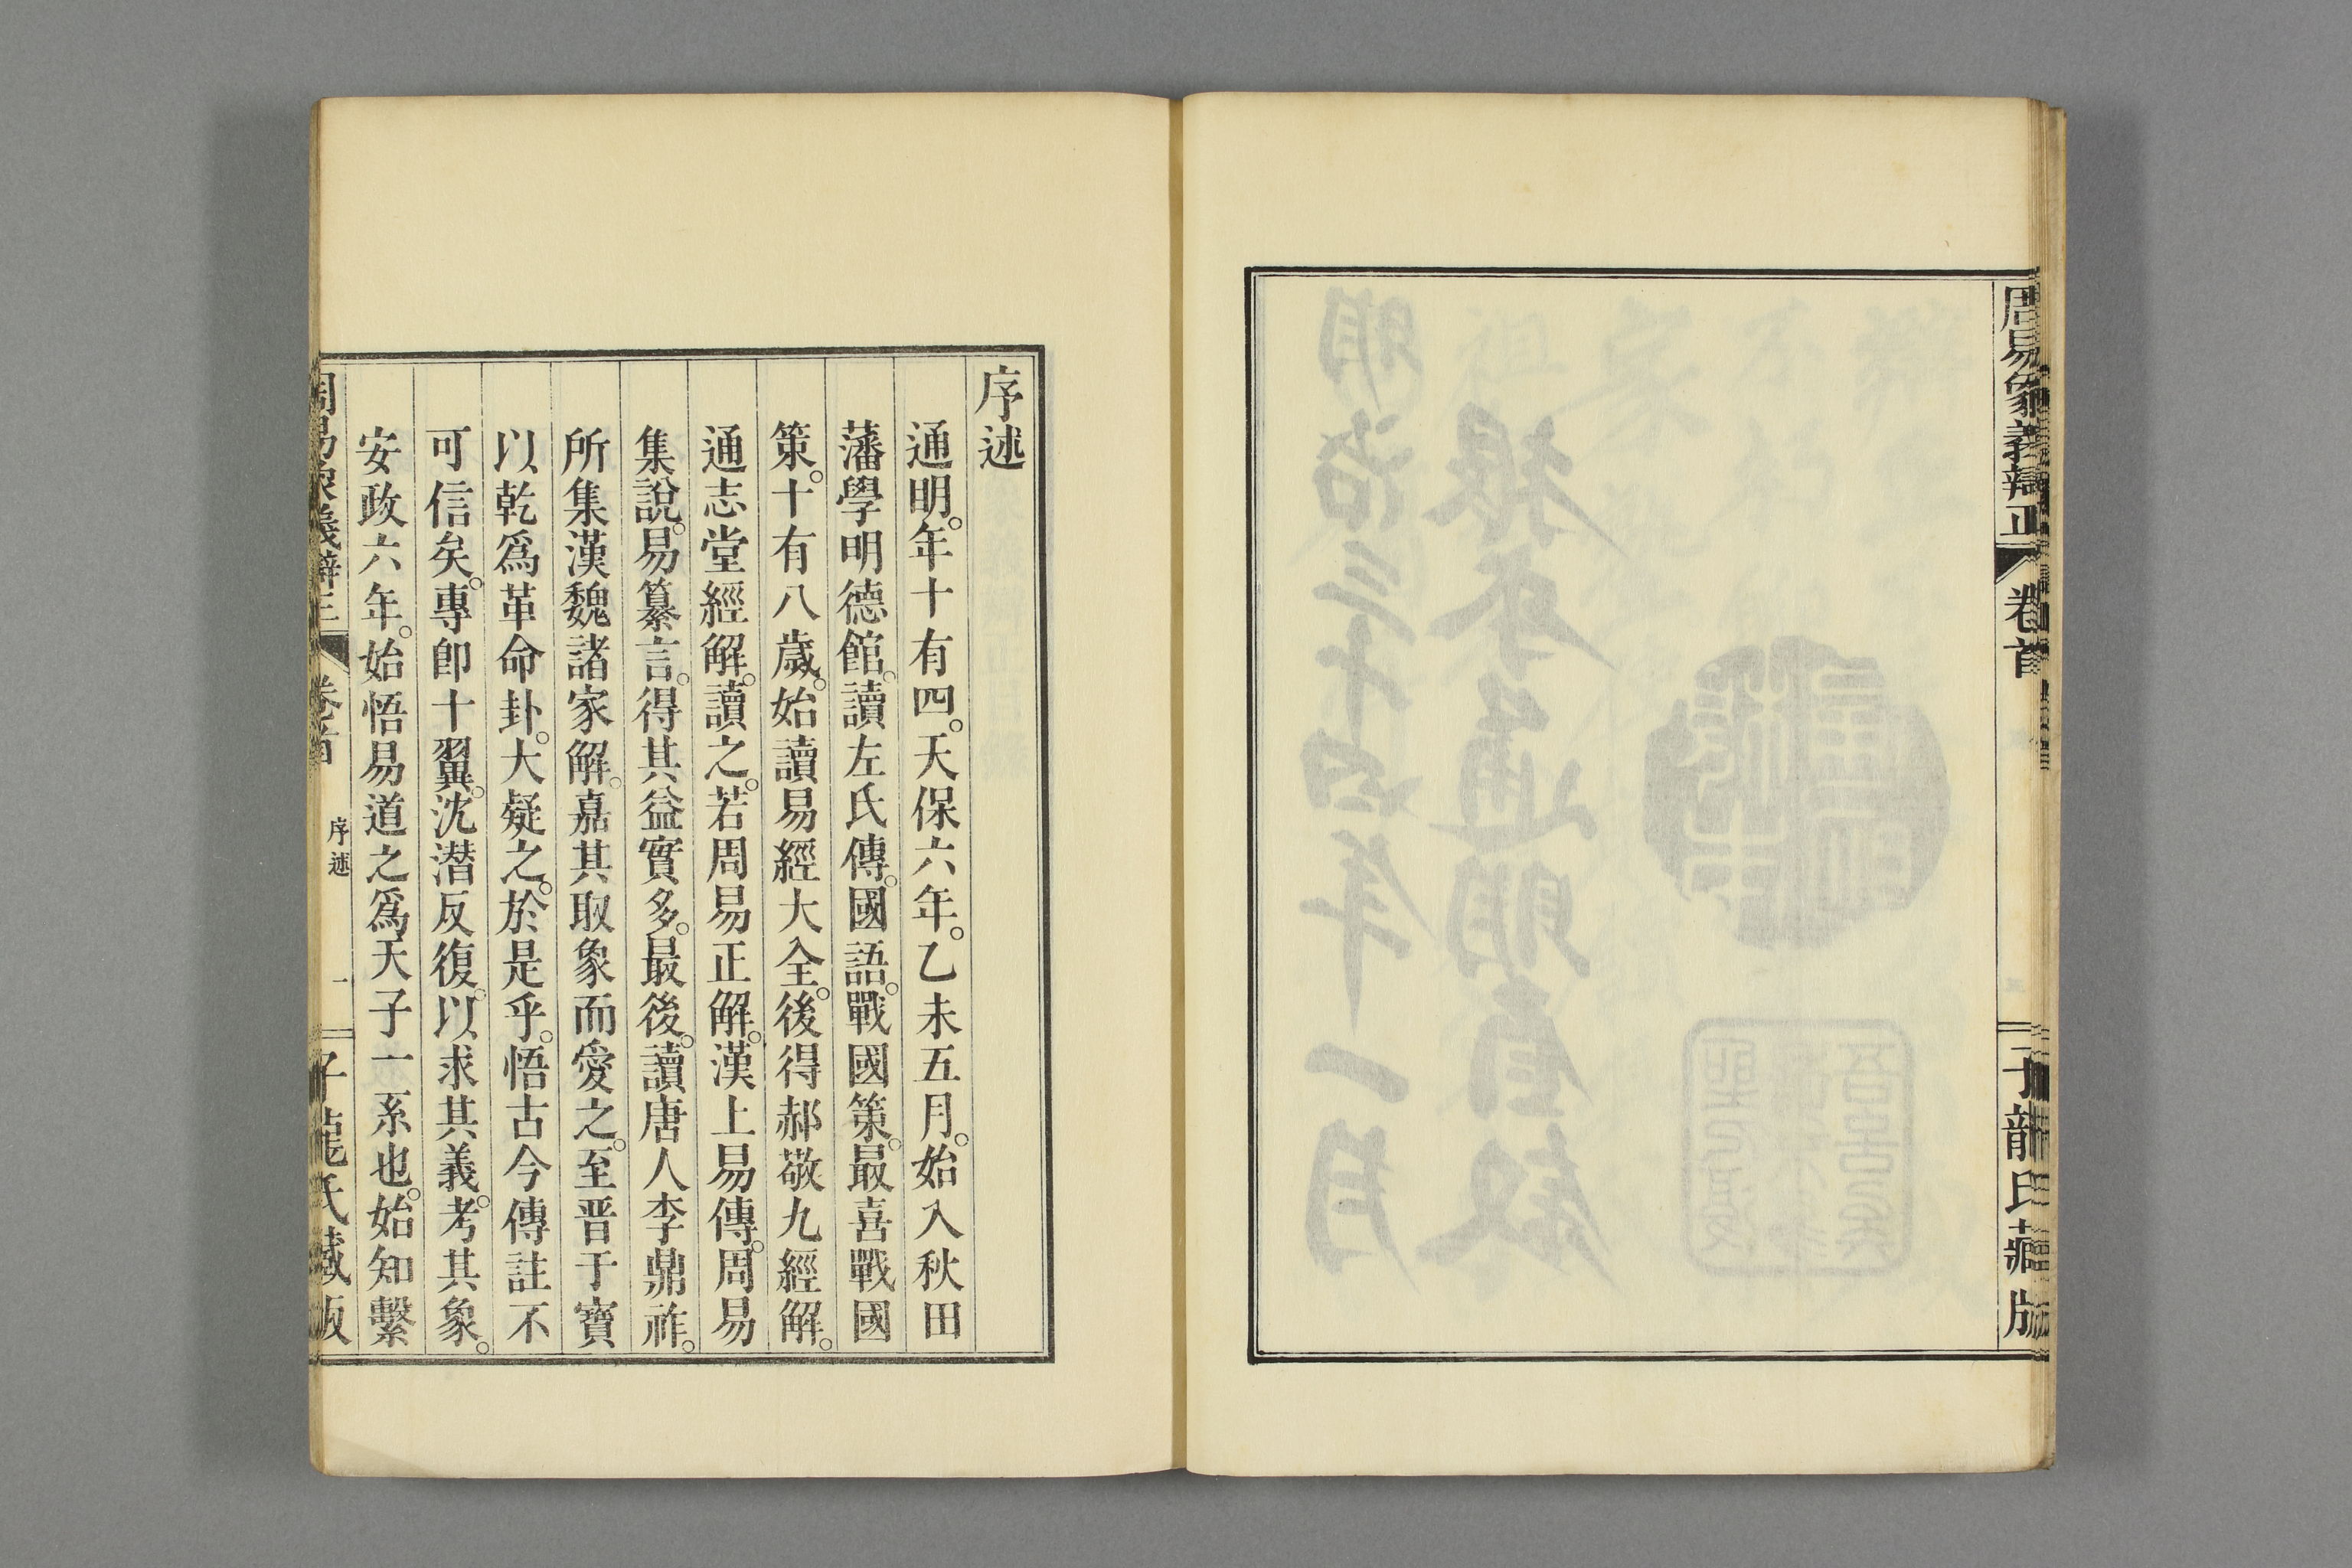 周易象義辯正 卷首 子龍氏藏版
序述
通明。年十有四。天保六年。乙未五月。始入秋田
藩學明德館。讀左氏傳。國語。戰國策。最喜戰國
策。十有八歲。始讀易經大全。後得郝敬九經解。
通志堂經解。讀之。若周易正解。漢上易傳。周易
集說。易纂言。得其益實多。最後。讀唐人李鼎祚。
所集漢魏諸家解。嘉其取象而愛之。至晋于寶
以乾爲革命卦。大疑之。於是乎。悟古今傳註不
可信矣。專卽十翼。沈潛反復。以求其義。考其象。
安政六年。始悟易道之爲天子一系也。始知繫
周易象義辯正 卷首 序述 一 子龍氏藏版